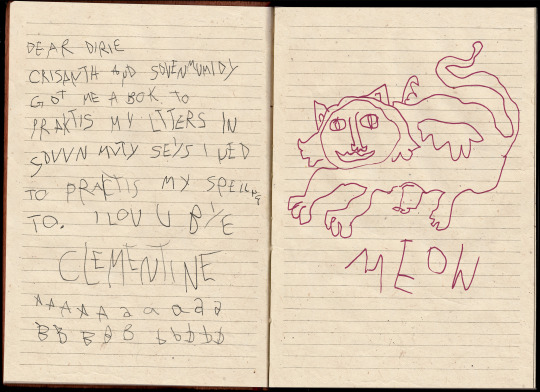 DEAR DIRIE
CRISANTH AND SOVENMUMIDY
GOT ME A BOK TO
PRAKTIS MY LITERS IN
SOVVN MUTY SEYS I NED
TO PRACTIS MY SPELLING
TO. I LOV U BYE
CLEMENTINE
A A A A A a a a a a
B B B B B b b b b b
MEOW